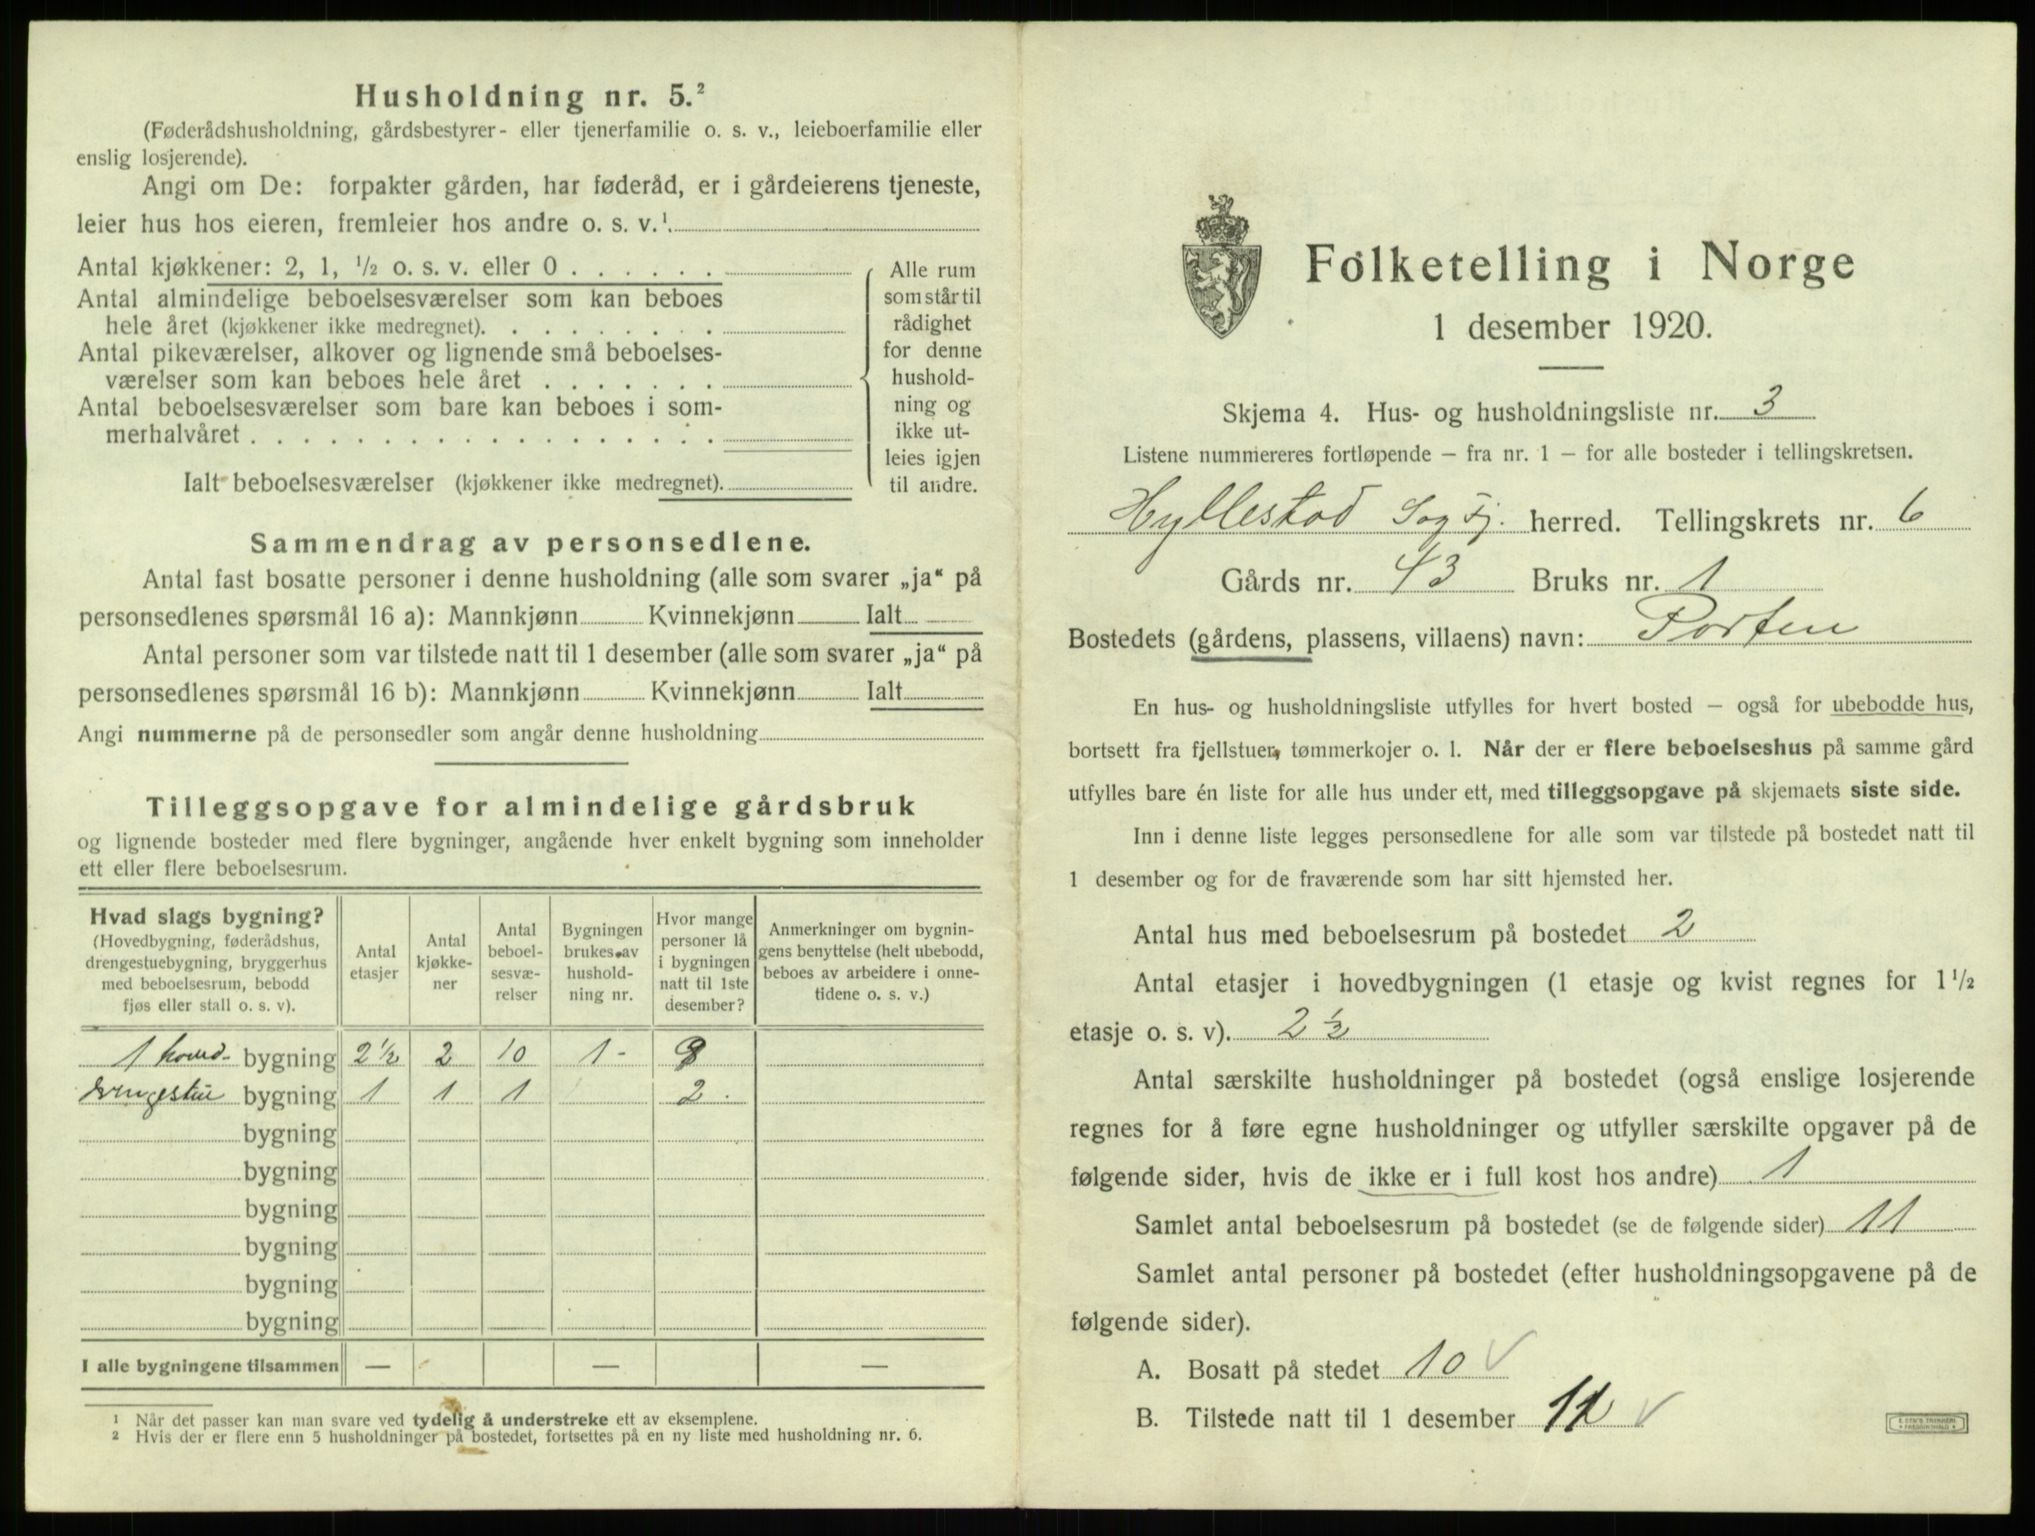 Husholdning nr. 5.²
(Føderådshusholdning, gårdsbestyrer- eller tjenerfamilie o. s. v., leieboerfamilie eller
enslig losjerende).
Angi om De: forpakter gården, har føderåd, er i gårdeierens tjeneste,
leier hus hos eieren, fremleier hos andre o. s. v.¹
Antal kjøkkener: 2, 1, ½ o. s. v. eller 0 . . . . . .
Antal almindelige beboelsesværelser som kan beboes
hele året (kjøkkener ikke medregnet). . . . . . . . .
Antal pikeværelser, alkover og lignende små beboelses-
værelser som kan beboes hele året . . . . . . .
Antal beboelsesværelser som bare kan beboes i som-
merhalvåret . . . . . . . . . . . . . . . . . .
Ialt beboelsesværelser (kjøkkener ikke medregnet).
Alle rum
som står til
rådighet
for denne
hushold-
ning og
ikke ut-
leies igjen
til andre.
Sammendrag av personsedlene.
Antal fast bosatte personer i denne husholdning (alle som svarer „ja“ på
personsedlenes spørsmål 16 a): Mannkjønn Kvinnekjønn Ialt
Antal personer som var tilstede natt til 1 desember (alle som svarer „ja“ på
personsedlenes spørsmål 16 b): Mannkjønn Kvinnekjønn Ialt
Angi nummerne på de personsedler som angår denne husholdning
Tilleggsopgave for almindelige gårdsbruk
og lignende bosteder med flere bygninger, angående hver enkelt bygning som inneholder
ett eller flere beboelsesrum.
Hvad slags bygning?
(Hovedbygning, føderådshus,
drengestuebygning, bryggerhus
med beboelsesrum, bebodd
fjøs eller stall o. s. v).
Antal
etasjer
Antal
kjøkke-
ner
Antal
beboel-
sesvæ-
relser
Bygningen
brukes av
hushold-
ning nr.
Hvor mange
personer lå
i bygningen
natt til 1ste
desember?
Anmerkninger om bygnin-
gens benyttelse (helt ubebodd,
beboes av arbeidere i onne-
tidene o. s. v.)
1 hoved- bygning 2½ 2 10 1 - 9
drengestue bygning 1 1 1 2 .
bygning
bygning
bygning
bygning
bygning
bygning
I alle bygningene tilsammen — — —
¹ Når det passer kan man svare ved tydelig å understreke ett av eksemplene.
² Hvis der er flere enn 5 husholdninger på bostedet, fortsettes på en ny liste med husholdning nr. 6.
Folketelling i Norge
1 desember 1920.
Skjema 4. Hus- og husholdningsliste nr. 3
Listene nummereres fortløpende – fra nr. 1 – for alle bosteder i tellingskretsen.
Hyllestad Sog Fj. herred. Tellingskrets nr. 6
Gårds nr. 43 Bruks nr. 1
Bostedets (gårdens, plassens, villaens) navn: Porten
En hus- og husholdningsliste utfylles for hvert bosted – også for ubebodde hus,
bortsett fra fjellstuer, tømmerkojer o. l. Når der er flere beboelseshus på samme gård
utfylles bare én liste for alle hus under ett, med tilleggsopgave på skjemaets siste side.
Inn i denne liste legges personsedlene for alle som var tilstede på bostedet natt til
1 desember og for de fraværende som har sitt hjemsted her.
Antal hus med beboelsesrum på bostedet 2
Antal etasjer i hovedbygningen (1 etasje og kvist regnes for 1½
etasje o. s. v). 2½
Antal særskilte husholdninger på bostedet (også enslige losjerende
regnes for å føre egne husholdninger og utfyller særskilte opgaver på de
følgende sider, hvis de ikke er i full kost hos andre) 1
Samlet antal beboelsesrum på bostedet (se de følgende sider) 11
Samlet antal personer på bostedet (efter husholdningsopgavene på de
følgende sider).
A. Bosatt på stedet 10 ✓
B. Tilstede natt til 1 desember 11 ✓